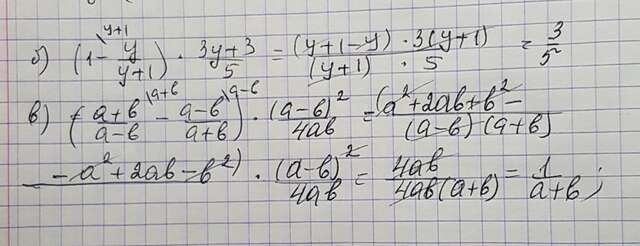 б) (1 - y/(y+1) \y+1) · (3y+3)/5 = ((y+1-y) · 3(y+1))/((y+1) · 5) = 3/5
в) ((a+b)/(a-b) \a+b - (a-b)/(a+b) \a-b) · (a-b)²/4ab = (a²+2ab+b² -/(a-b)(a+b)
- a²+2ab-b²) · (a-b)²/4ab = 4ab/4ab(a+b) = 1/(a+b);